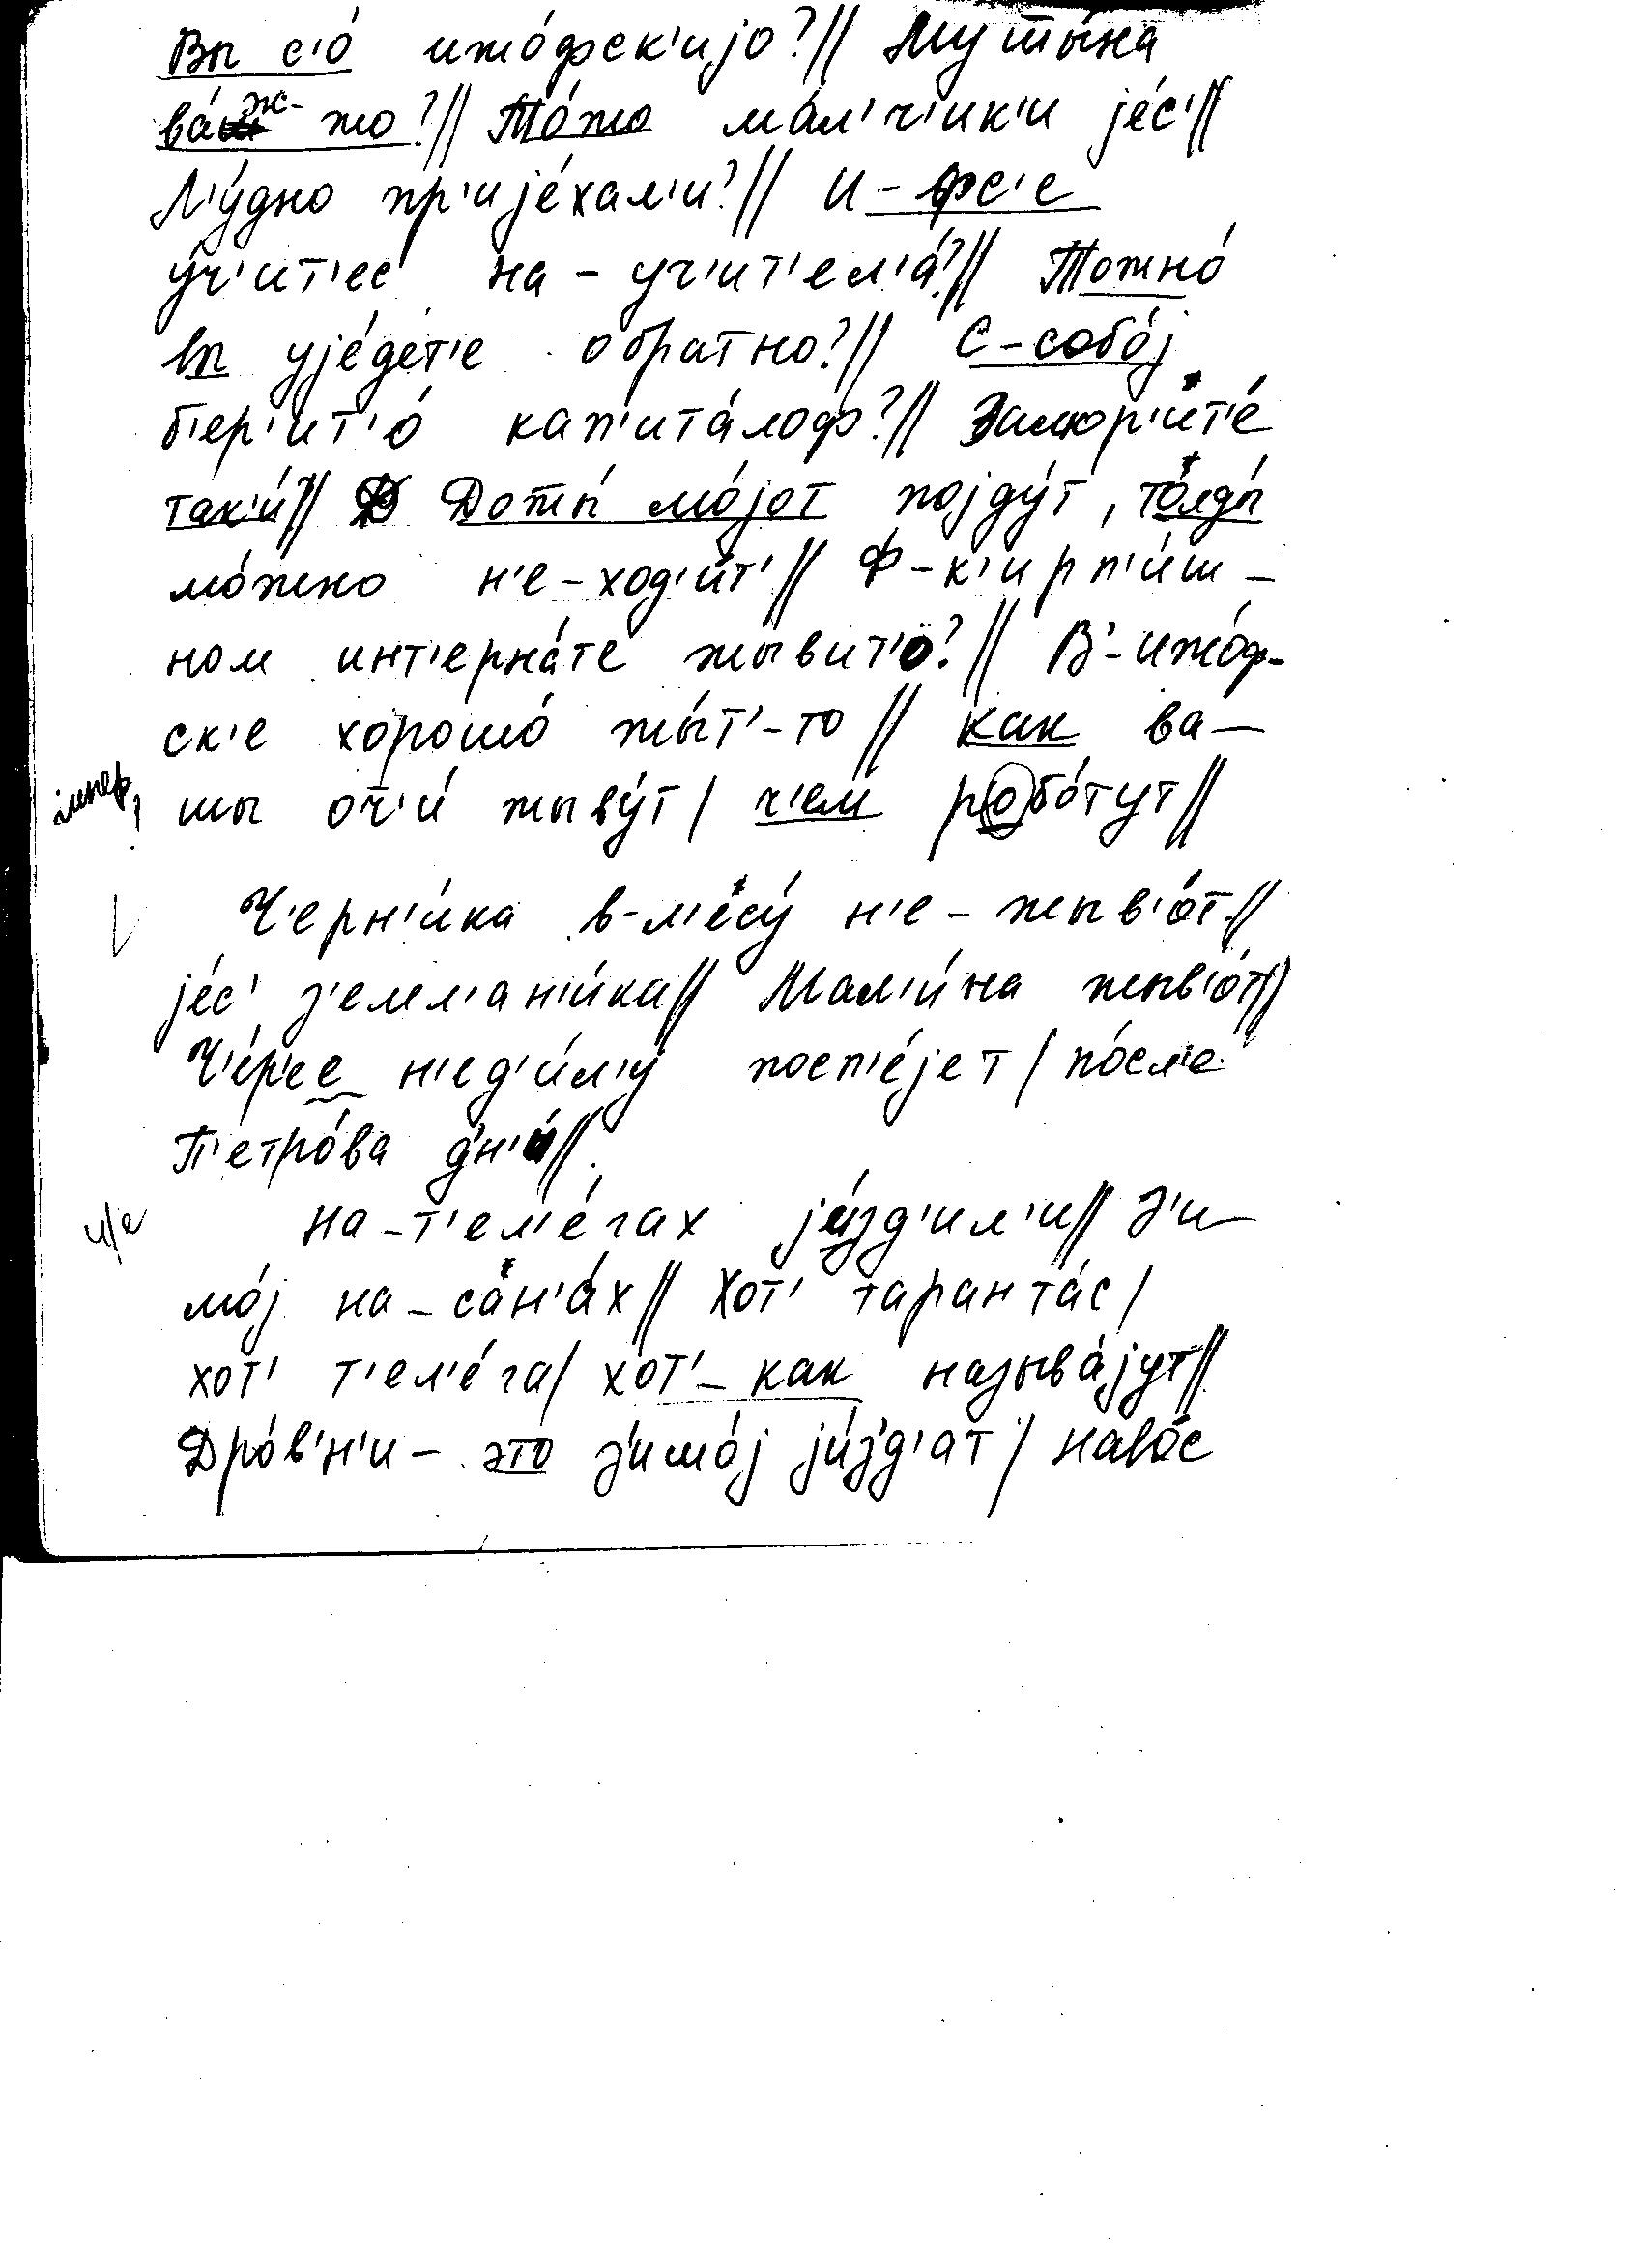 Вы с'о́ ижо́фск'иjо?// Мутты́на
ва́ж- жо?// То́жо ма́л'ч'ик'и jéс'//
Л'у́дно пр'иjéхал'и?// И-фс'е
у́ч'ит'ес' на-уч'ит'ел'а́?// Тожно́
вы уjéдет'е обратно?// С-собо́j
б'ер'ит'о́ кап'ита́лоф?// Замор'и́т'е́
так'и́// Доты́ мо́jот поjду́т, то́лды́
мо́жно н'е-ход'и́т'// Ф-к'ирп'и́ш-
ном инт'ерна́те жывит'о́?// В'-ижо́ф-
ск'е хорошо́ жы́т'-то// как ва-
шы оч'и́ жыву́т/ ч'ем робо́тут//
Ч'ерн'и́ка в-л'е́су́ н'е-жыв'о́т//
jéс' з'емл'ан'и́ка// Мал'и́на жыв'о́т//
Ч'е́р'ес н'ед'и́л'у посп'éjет/ по́сл'е
П'етро́ва д'н'и́//
и/е На-т'ел'е́гах jи́зд'ил'и// З'и-
мо́j на-са́н'а́х// Хот' таранта́с/
хот' т'ел'е́га/ хот'-как называ́jут//
Дро́в'н'и- это з'имо́j jи́з'д'ат/ наво́с